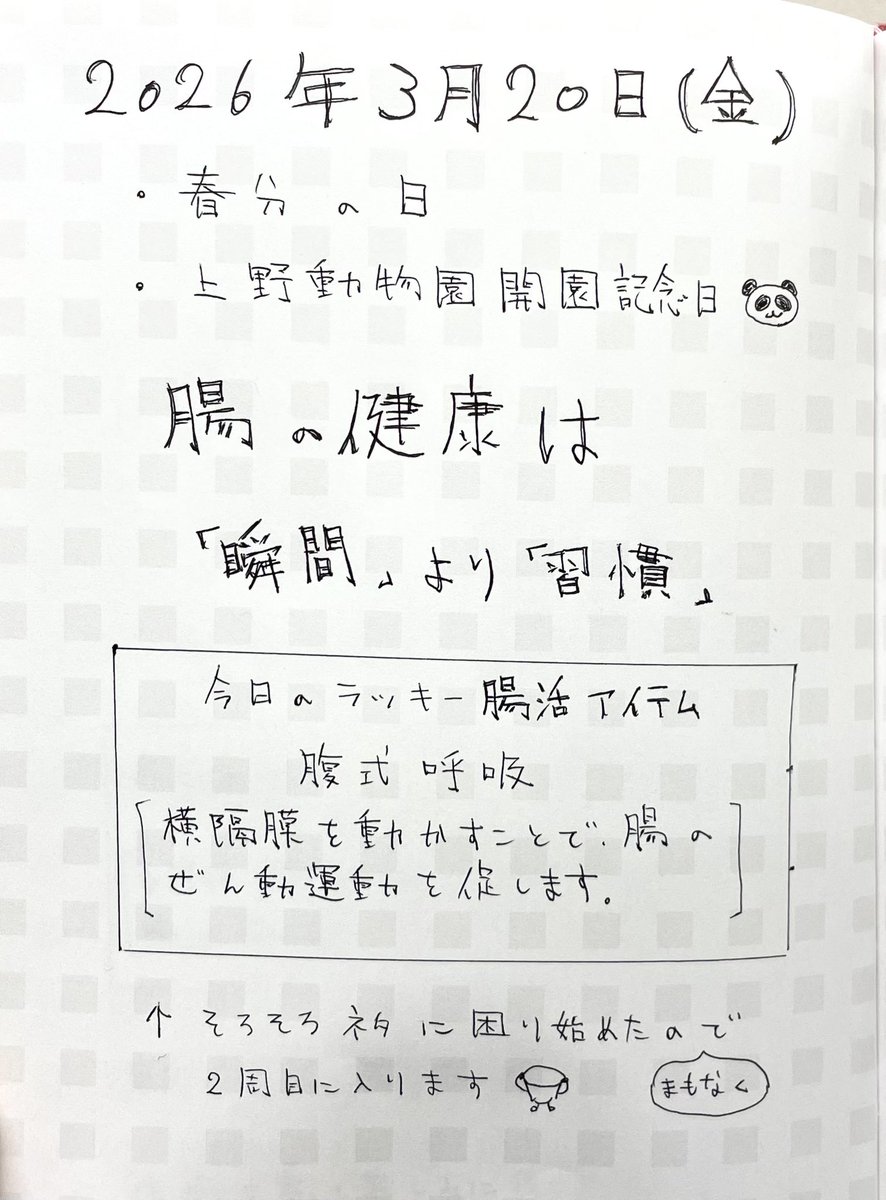 2026年3月20日(金)
・春分の日
・上野動物園開園記念日
腸の健康は
「瞬間」より「習慣」
今日のラッキー腸活アイテム
腹式呼吸
横隔膜を動かすことで、腸の
ぜん動運動を促します。
↑そろそろネタに困り始めたので
2周目に入ります
まもなく